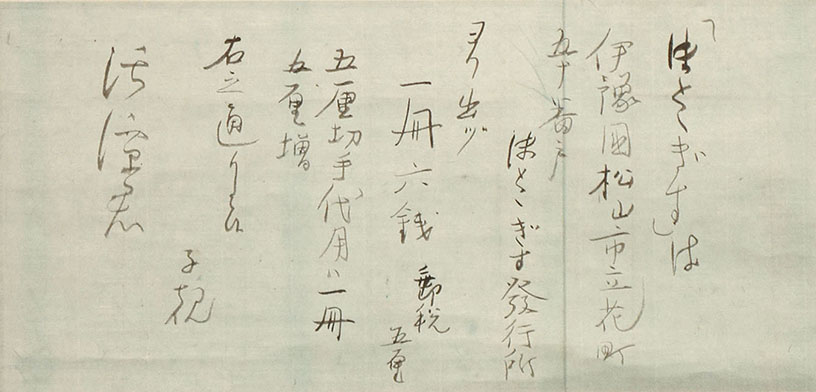 「ほとゝぎす」は
伊豫國松山市立花町
五十番戸
ほとゝぎす發行所
ヨリ出ヅ
一冊六銭 郵税 五厘
五厘切手代用ハ一冊
五厘増
右之通りに候
子規